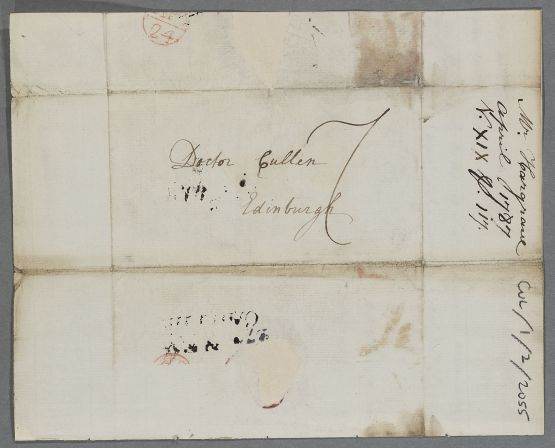 24
Doctor Cullen
7
Edinburgh
Mr. Hargrave
April 1787
N. XIX
CUL/1/2/2055